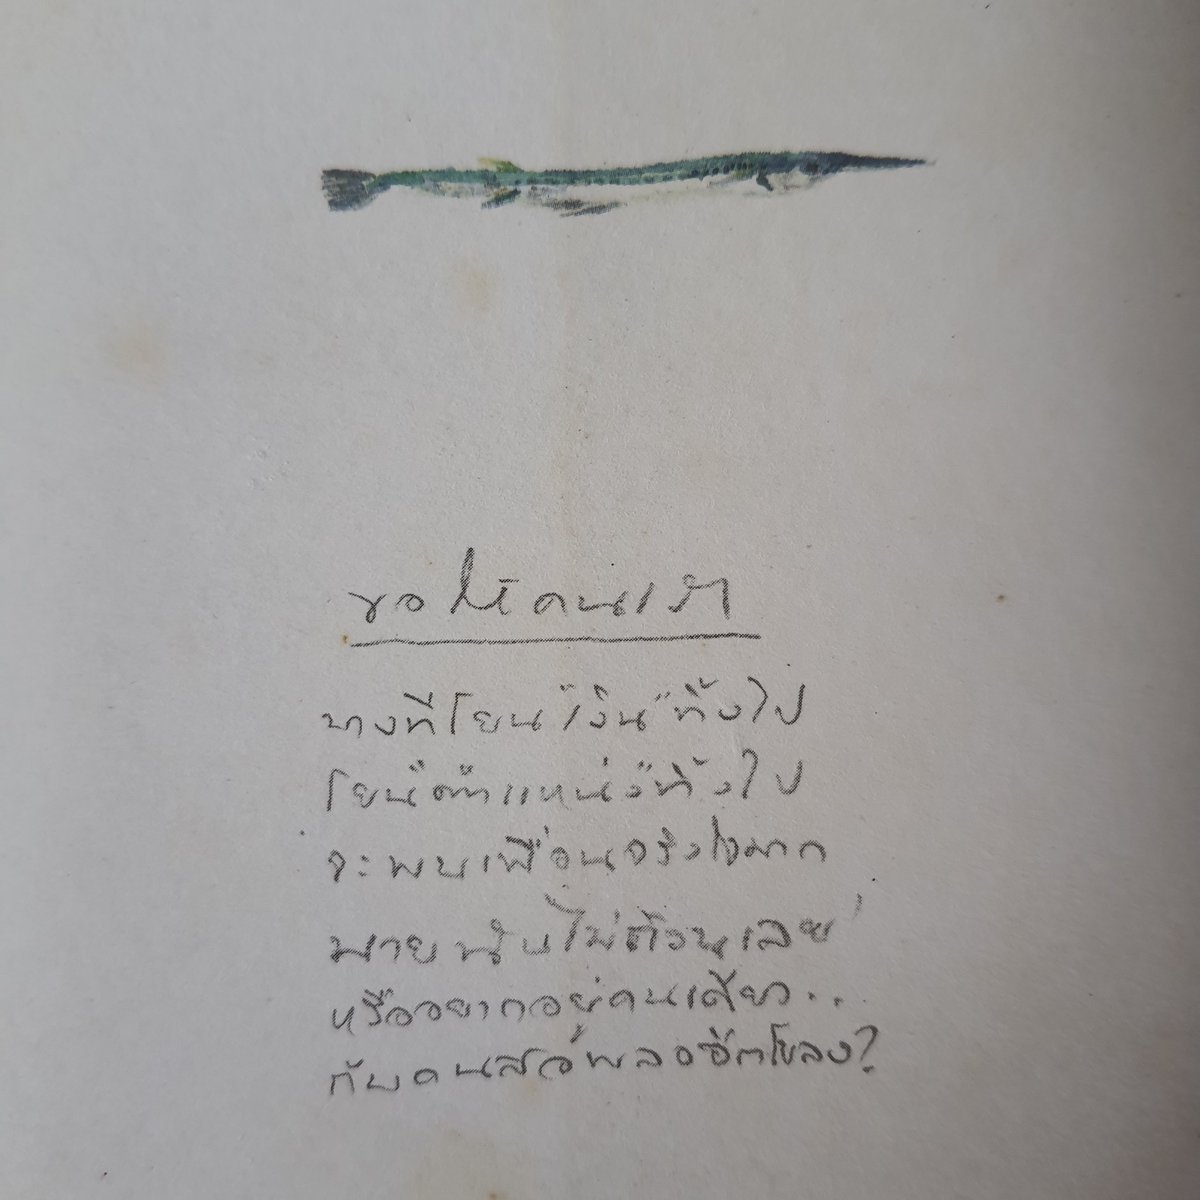 ขอให้คนเรา
บางทีโยน"เงิน"ทิ้งไป
โยน"ตำแหน่ง"ทิ้งไป
จะพบเพื่อนจริงใจมาก
นับไม่ถ้วนเลย
หรืออยากอยู่คนเดียว..
กับคนสอพลอชีตโขลง?